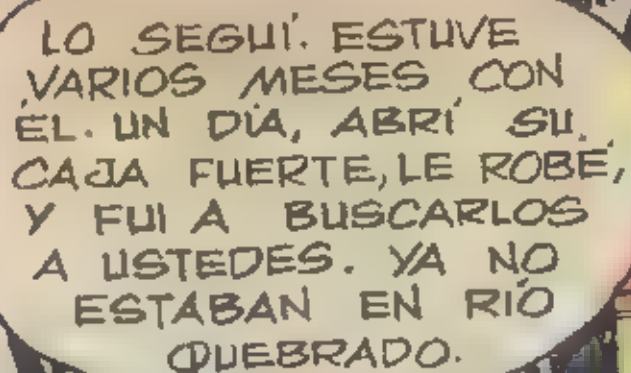 LO SEGUÍ. ESTUVE
VARIOS MESES CON
ÉL. UN DÍA, ABRÍ SU
CAJA FUERTE, LE ROBÉ,
Y FUI A BUSCARLOS
A USTEDES. YA NO
ESTABAN EN RÍO
QUEBRADO.